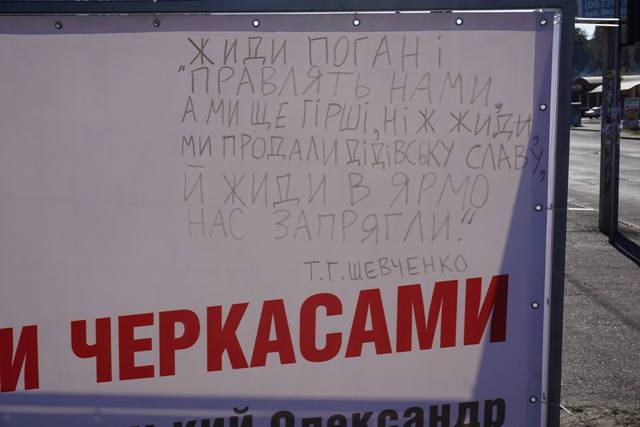 ЖИДИ ПОГАНІ
"ПРАВЛЯТЬ НАМИ,
А МИ ЩЕ ГІРШІ, НІЖ ЖИДИ,
МИ ПРОДАЛИ ДІДІВСЬКУ СЛАВУ,
Й ЖИДИ В ЯРМО
НАС ЗАПРЯГЛИ."
Т.Г. ШЕВЧЕНКО
И ЧЕРКАСАМИ
Олександр